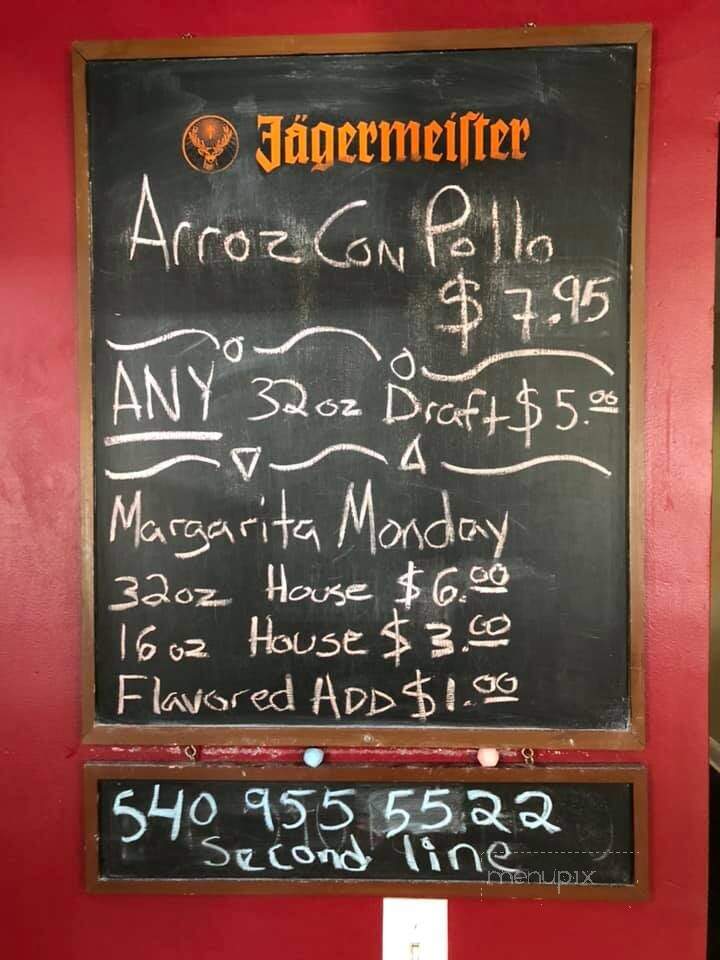 Jägermeiſter
Arroz Con Pollo
$7.95
ANY 32oz Draft $5.00
Margarita Monday
32oz House $6.00
16oz House $3.00
Flavored ADD $1.00
540 955 5522
Second line
menupix